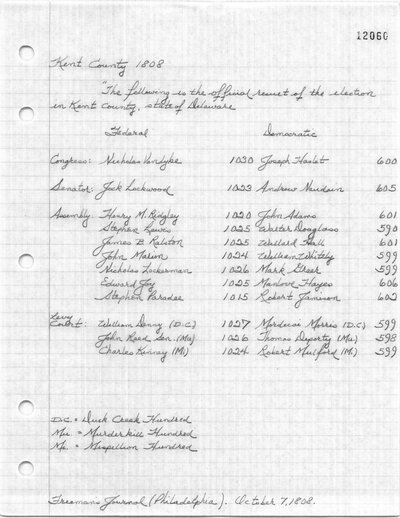 12060
Kent County 1808
"The following is the official result of the election
in Kent County, state of Delaware
Federal Democratic
Congress: Nicholas Vandyke 1030 Joseph Haslet 600
Senator: Jock Lockwood 1023 Andrew Naudain 605
Assembly: Henry M. Ridgley 1020 John Adams 601
Stephen Lewis 1025 Walter Douglass 590
James B Ralston 1025 Willard Hall 601
John Marim 1024 William Whitely 599
Nicholas Lockerman 1026 Mark Greer 599
Edward Joy 1025 Manlove Hayes 606
Stephen Paradee 1015 Robert Jamison 602
Levy
Court: William Denny (D.C.) 1027 Mordecai Morris (D.C) 599
John Reed Sen. (Mu) 1026 Thomas (Mu) 598
Charles Kinney (Mi) 1024 Robert Mulford (Mi.) 599
D.C. = Duck Creek Hundred
Mu. = Murderkill Hundred
Mi. = Mispillion Hundred
Freemans Journal (Philadelphia). October 7, 1808.